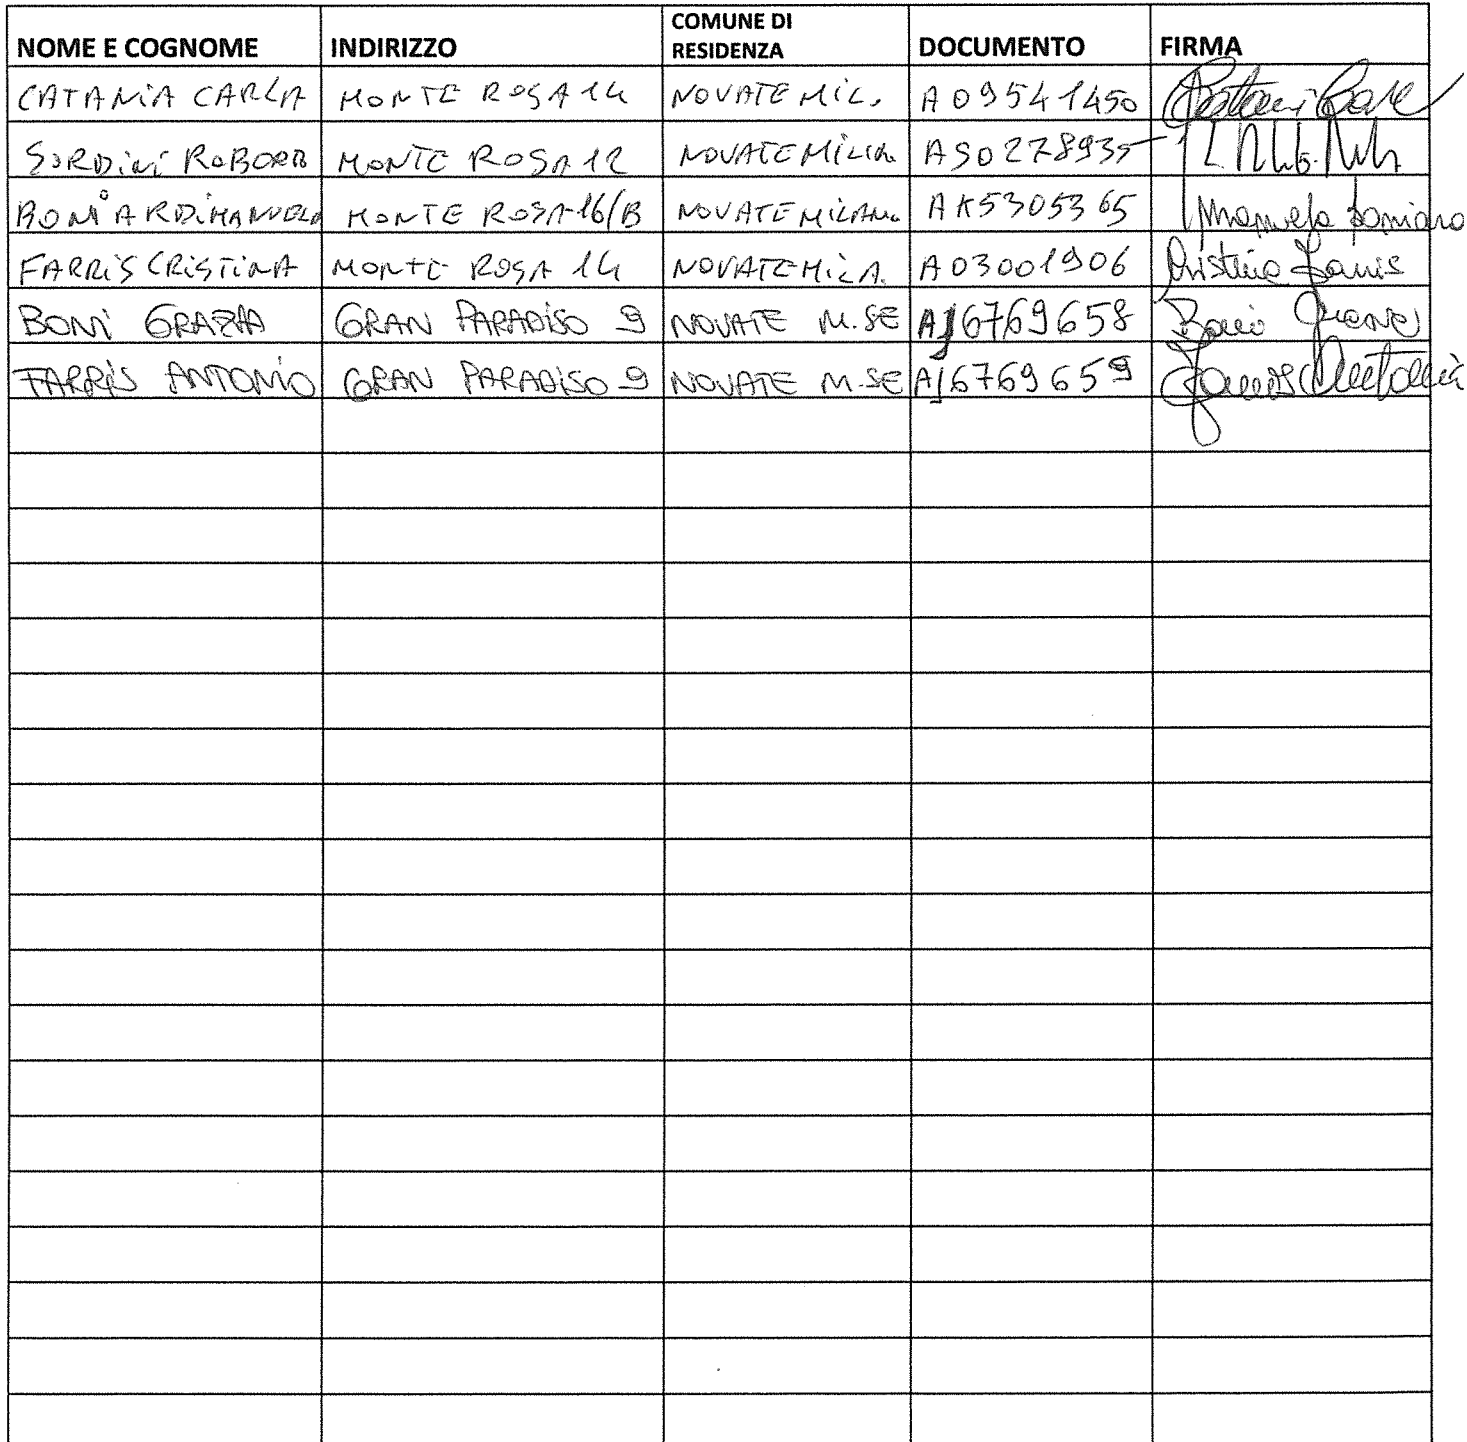 NOME E COGNOME INDIRIZZO COMUNE DI RESIDENZA DOCUMENTO FIRMA
CATANIA CARLA MONTE ROSA 14 NOVATE MIL. A09541450
SORDINI MONTE ROSA 12 NOVATE MILAN. AS0278935
MONTE ROSA 16/B NOVATE MILAN. AK5305365 Manuela
FARRIS CRISTINA MONTE ROSA 14 NOVATE MILA. A03001906 Cristina Farris
BONI GRAZIA GRAN PARADISO 9 NOVATE M.SE AJ6769658
FARRIS ANTONIO GRAN PARADISO 9 NOVATE M.SE AJ6769659 Farris Antonio